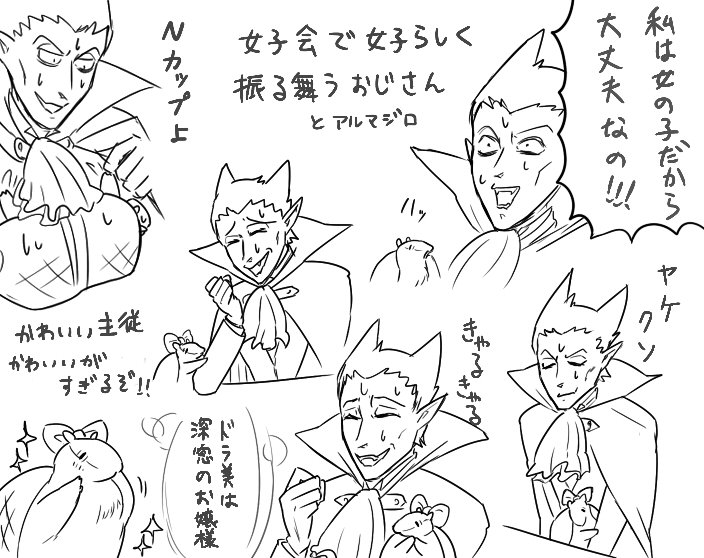 私は女の子だから
大丈夫なの!!!
女子会で女子らしく
振る舞うおじさん
とアルマジロ
Nカップよ
ハッ
ヤケ
クソ
かわいい主従
かわいいが
すぎるぞ!!
きゃるきゃる
ドラ美は
深窓のお嬢様